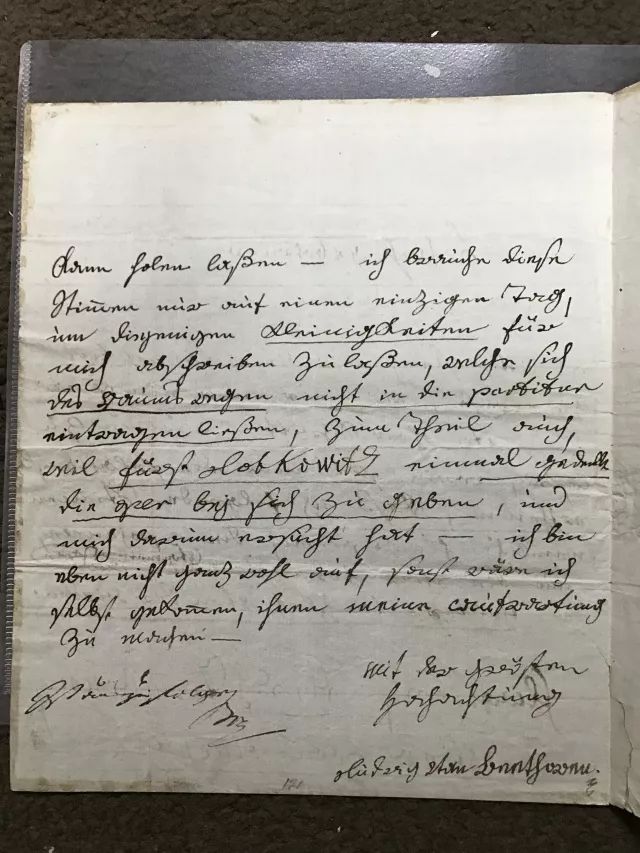 kann holen laßen — ich brauche diese
Stimmen nur auf einen einzigen Tag,
um diejenigen Kleinigkeiten für
mich abschreiben zu laßen, welche sich
des Raums wegen nicht in die partitur
eintragen ließen, zum Theil auch,
weil fürst Lobkowitz einmal gedenkt
die oper bej sich zu geben, und
mich darum ersucht hat — ich bin
eben nicht ganz wohl auf, sonst wäre ich
selbst gekommen, ihnen meine aufwartung
zu machen —
mit der grösten
Hochachtung
Ludwig van Beethoven